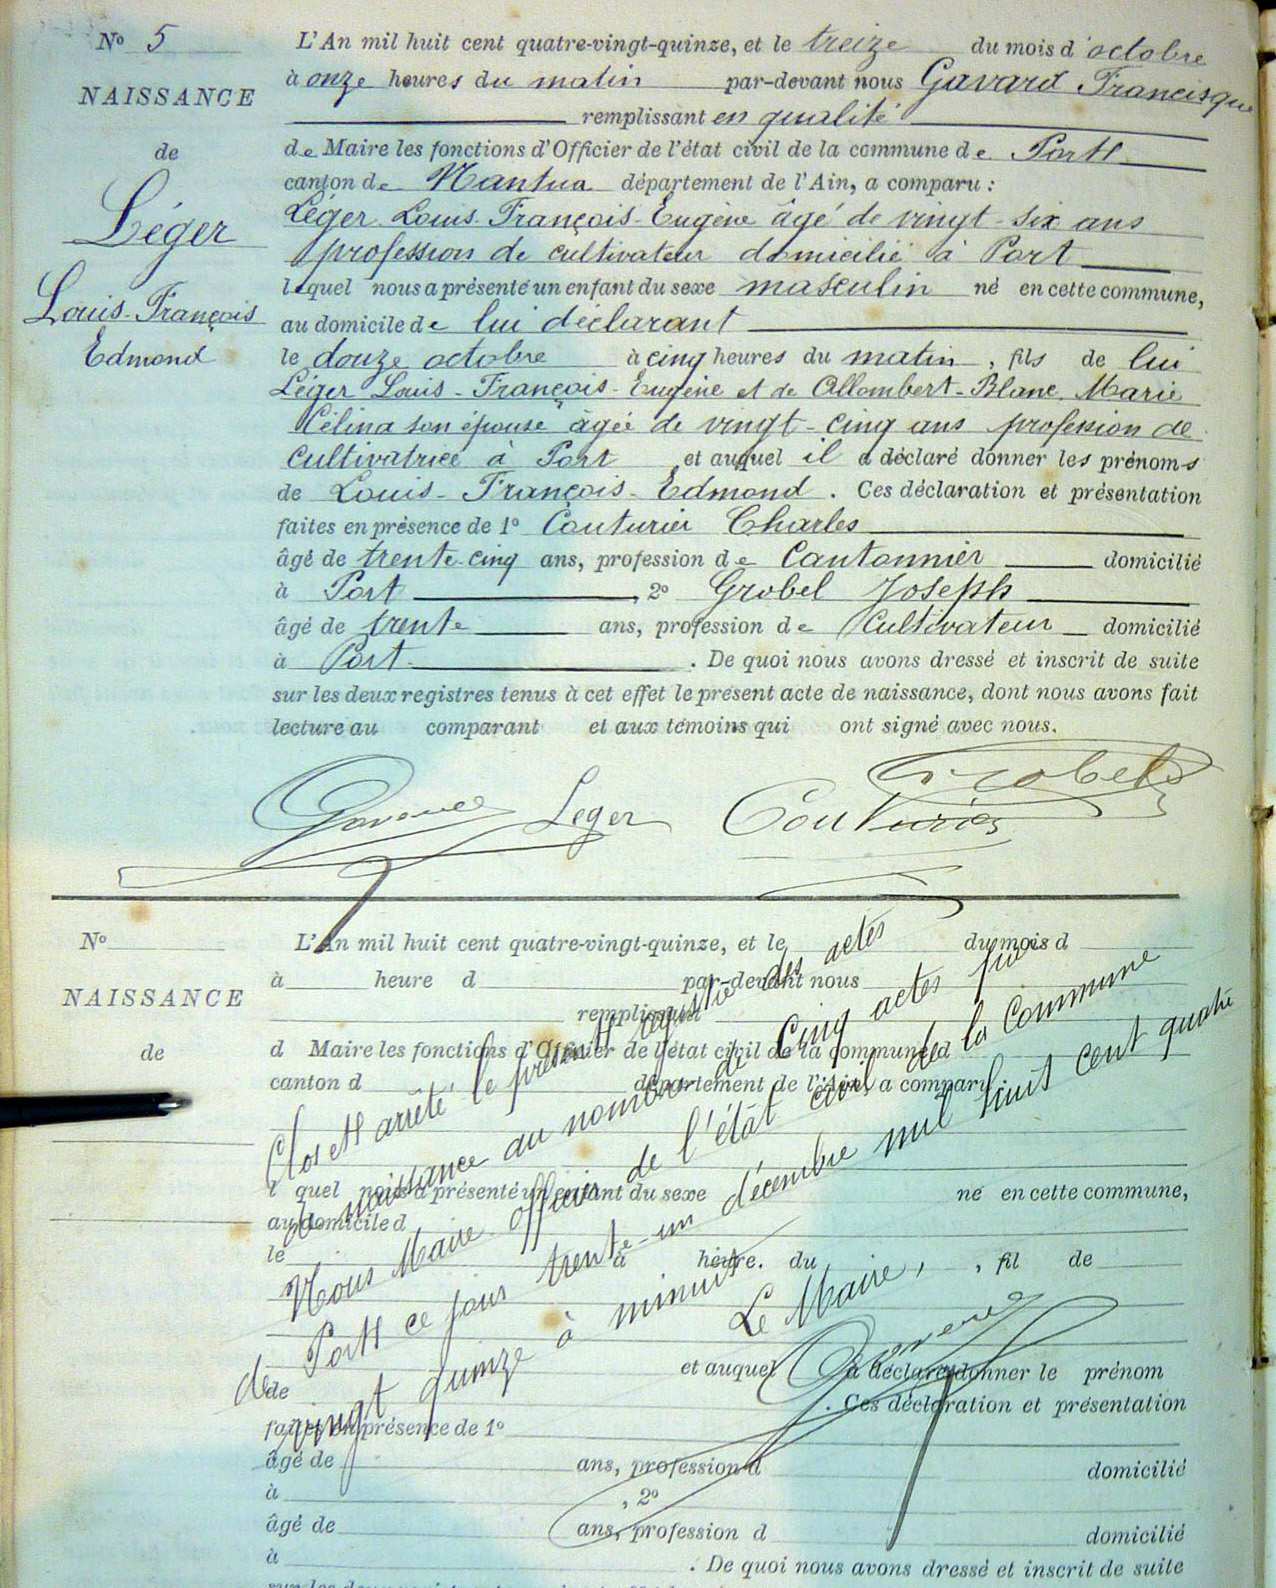 N° 5
NAISSANCE
de
Léger
Louis-François
Edmond
L'An mil huit cent quatre-vingt-quinze, et le treize du mois d'octobre
à onze heures du matin par-devant nous Gavard Francisque
remplissant en qualité
de Maire les fonctions d'Officier de l'état civil de la commune de Port
canton de Nantua département de l'Ain, a comparu :
Léger Louis-François-Eugène âgé de vingt-six ans
profession de cultivateur domicilié à Port
lequel nous a présenté un enfant du sexe masculin né en cette commune,
au domicile de lui déclarant
le douze octobre à cinq heures du matin, fils de lui
Léger Louis-François-Eugène et de Allombert-Blanc Marie
Célina son épouse âgée de vingt-cinq ans profession de
cultivatrice à Port et auquel il a déclaré donner les prénoms
de Louis-François-Edmond. Ces déclaration et présentation
faites en présence de 1° Couturier Charles
âgé de trente-cinq ans, profession de Cantonnier domicilié
à Port, 2° Grobel Joseph
âgé de trente ans, profession de Cultivateur domicilié
à Port. De quoi nous avons dressé et inscrit de suite
sur les deux registres tenus à cet effet le présent acte de naissance, dont nous avons fait
lecture au comparant et aux témoins qui ont signé avec nous.
Grobel
Leger Couturier
N°
NAISSANCE
de
L'An mil huit cent quatre-vingt-quinze, et le du mois d
à heure d par-devant nous
remplissant
d Maire les fonctions d'Officier de l'état civil de la commune d
canton d département de l'Ain, a comparu :
l quel nous a présenté un enfant du sexe né en cette commune,
au domicile d
le à heure. du , fil de
et auquel a déclaré donner le prénom
de . Ces déclaration et présentation
faites en présence de 1°
âgé de ans, profession d domicilié
à , 2°
âgé de ans, profession d domicilié
à . De quoi nous avons dressé et inscrit de suite
Clos et arrêté le présent registre des actes
de naissance au nombre de Cinq actes
Nous Maire officier de l'état civil de la Commune
de Port ce jour trente-un décembre mil huit cent quatre
vingt quinze à minuit
Le Maire,